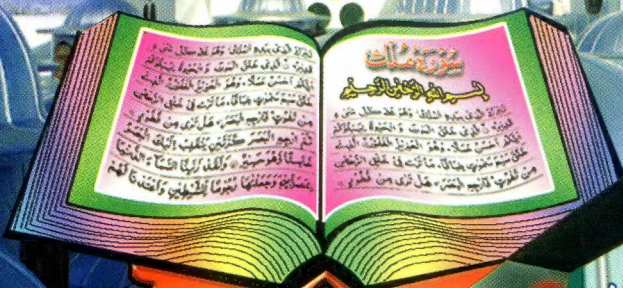 سُوْرَة مُلْك
بِسْمِ اللهِ الرَّحْمٰنِ الرَّحِيْمِ
تَبٰرَكَ الَّذِي بِيَدِهِ الْمُلْكُ وَهُوَ عَلٰى كُلِّ شَيْءٍ
قَدِيْرٌ ○ الَّذِي خَلَقَ الْمَوْتَ وَالْحَيٰوةَ لِيَبْلُوَكُمْ
اَيُّكُمْ اَحْسَنُ عَمَلًا وَهُوَ الْعَزِيْزُ الْغَفُوْرُ الَّذِي
خَلَقَ سَبْعَ سَمٰوٰتٍ طِبَاقًا مَا تَرٰى فِي خَلْقِ الرَّحْمٰنِ
مِنْ تَفٰوُتٍ فَارْجِعِ الْبَصَرَ هَلْ تَرٰى مِنْ فُطُوْرٍ ○
تَبٰرَكَ الَّذِي بِيَدِهِ الْمُلْكُ وَهُوَ عَلٰى كُلِّ شَيْءٍ
قَدِيْرٌ ○ الَّذِي خَلَقَ الْمَوْتَ وَالْحَيٰوةَ لِيَبْلُوَكُمْ
اَيُّكُمْ اَحْسَنُ عَمَلًا وَهُوَ الْعَزِيْزُ الْغَفُوْرُ الَّذِي
خَلَقَ سَبْعَ سَمٰوٰتٍ طِبَاقًا مَا تَرٰى فِي خَلْقِ الرَّحْمٰنِ
مِنْ تَفٰوُتٍ فَارْجِعِ الْبَصَرَ هَلْ تَرٰى مِنْ فُطُوْرٍ ○
ثُمَّ ارْجِعِ الْبَصَرَ كَرَّتَيْنِ يَنْقَلِبْ اِلَيْكَ الْبَصَرُ
خَاسِئًا وَهُوَ حَسِيْرٌ ○ وَلَقَدْ زَيَّنَّا السَّمَاءَ الدُّنْيَا
بِمَصَابِيْحَ وَجَعَلْنٰهَا رُجُوْمًا لِّلشَّيٰطِيْنِ وَاَعْتَدْنَا لَهُمْ